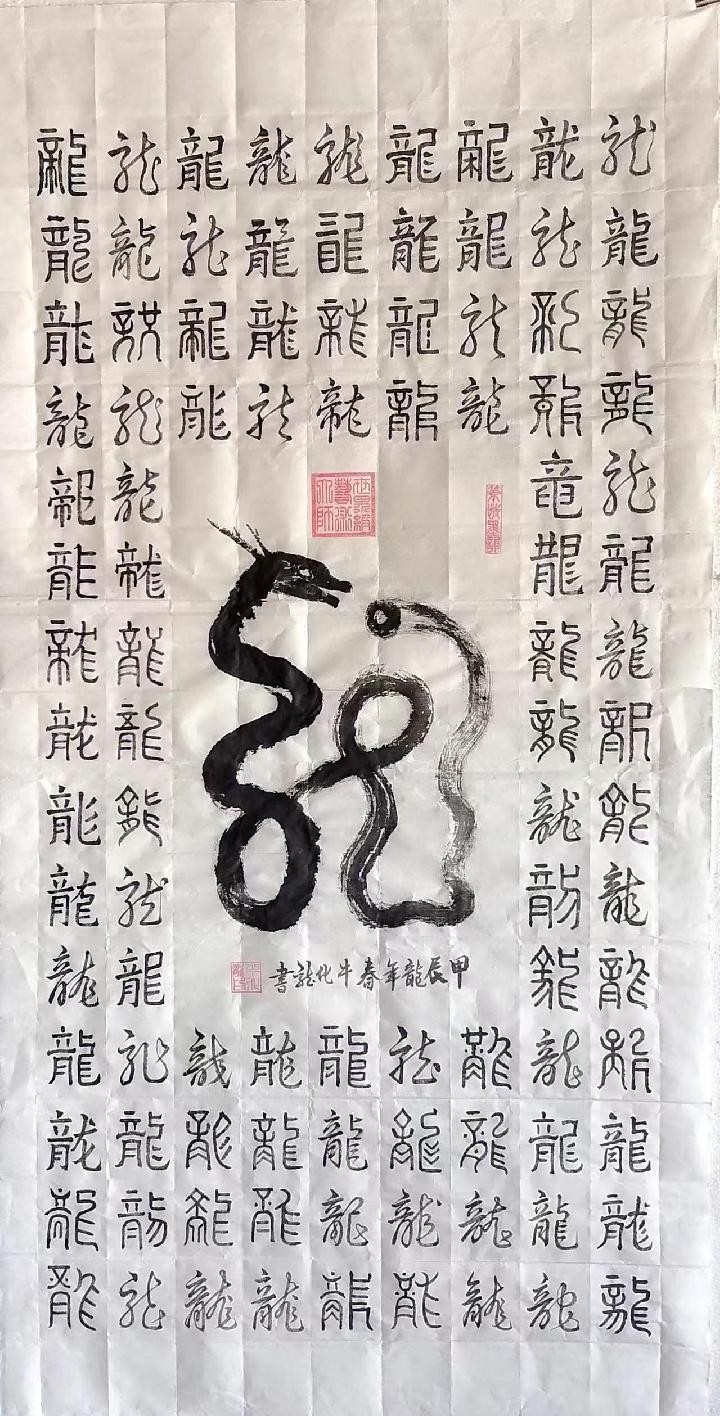 龍龍龍龍龍龍龍龍龍龍龍龍龍龍龍
龍龍龍龍龍龍龍龍龍龍龍龍龍龍龍
龍龍龍龍
龍龍龍龍
龍龍龍龍
龍龍龍龍
龍龍龍龍
世界級藝術大師
龍
甲辰龍年春牛化龍書
龍龍龍龍
龍龍龍龍
龍龍龍龍
龍龍龍龍
龍龍龍龍
龍龍龍龍龍龍龍龍龍龍龍龍龍龍龍
龍龍龍龍龍龍龍龍龍龍龍龍龍龍龍